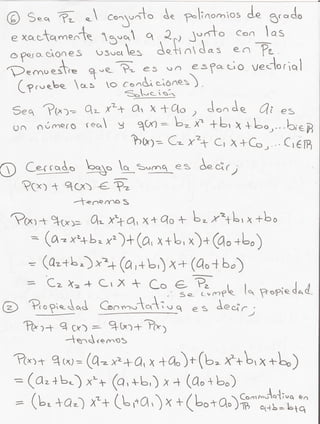 ⑥ Sea P̅₂ el conjunto de polinomios de grado
exactamente igual a 2, junto con las
operaciones usuales definidas en P̅₂
Demuestre que P̅₂ es un espacio vectorial
(pruebe las 10 condiciones).
Solución
Sea P(x)= a₂x²+ a₁x+a₀, donde ai es
un número real y q(x)= b₂x²+b₁x+b₀,... bi∈ℝ
R(x)= C₂x²+ C₁x+C₀,... Ci∈ℝ
① Cerrado bajo la suma es decir;
P(x) + q(x) ∈ P̅₂
tenemos
P(x)+q(x)= a₂x²+a₁x+a₀+ b₂x²+b₁x+b₀
= (a₂x²+b₂x²)+(a₁x+b₁x)+(a₀+b₀)
= (a₂+b₂)x²+(a₁+b₁)x+(a₀+b₀)
= C₂x₂+C₁x+C₀ ∈ P̅₂
∴ se cumple la propiedad.
② Propiedad Conmutativa es decir;
P(x)+ q(x) = q(x)+ P(x)
tendremos
P(x)+ q(x)=(a₂x²+a₁x+a₀)+(b₂x²+b₁x+b₀)
=(a₂+b₂)x²+(a₁+b₁)x+(a₀+b₀)
= (b₂+a₂)x²+(b₁+a₁)x+(b₀+a₀) Conmutativa en ℝ a+b=b+a